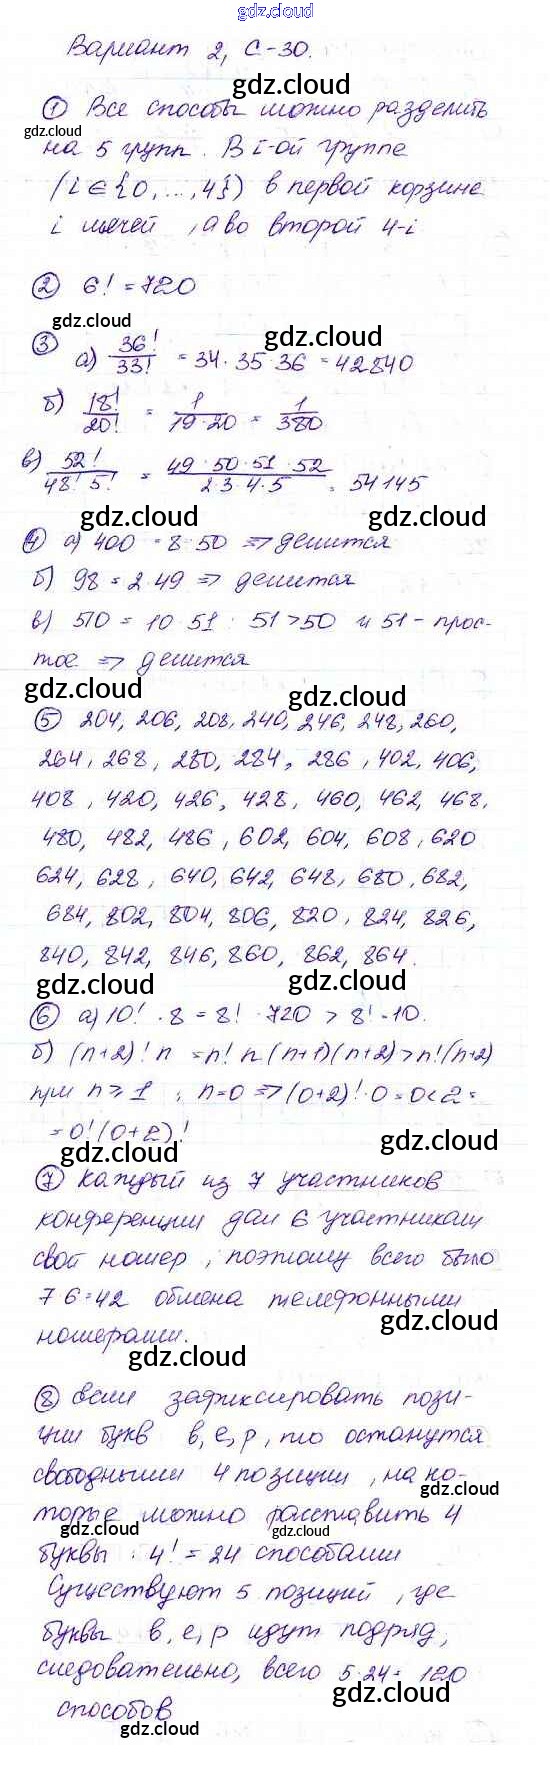 gdz.cloud
Вариант 2, С-30.
gdz.cloud
① Все способы можно разделить
gdz.cloud
на 5 групп. В i-ой группе
(i ∈ {0, ..., 4}) в первой корзине
i мячей, а во второй 4-i
② 6! = 720
gdz.cloud
gdz.cloud
③ а) 36!/33! = 34 · 35 · 36 = 42840
б) 18!/20! = 1/19·20 = 1/380
в) 52!/48! 5! = 49 · 50 · 51 · 52/2·3·4·5 = 54145
gdz.cloud gdz.cloud
④ а) 400 = 8 · 50 => делится
б) 98 = 2 · 49 => делится
в) 510 = 10 · 51 : 51 > 50 и 51 - прос-
тое => делится
gdz.cloud gdz.cloud
⑤ 204, 206, 208, 240, 246, 248, 260,
264, 268, 280, 284, 286, 402, 406,
408, 420, 426, 428, 460, 462, 468,
480, 482, 486, 602, 604, 608, 620
624, 628, 640, 642, 648, 680, 682,
684, 802, 804, 806, 820, 824, 826,
840, 842, 846, 860, 862, 864.
gdz.cloud gdz.cloud
⑥ а) 10! · 8 = 8! · 720 > 8! · 10.
б) (n+2)! n = n! n (n+1)(n+2) > n!(n+2)
при n ≥ 1 ; n=0 => (0+2)! · 0 = 0 < 2 =
= 0! (0+2)!
gdz.cloud
gdz.cloud
⑦ Каждый из 7 участников
конференции дал 6 участникам
свой номер, поэтому всего было
7 · 6 = 42 обмена телефонными
gdz.cloud
номерами.
gdz.cloud
⑧ Если зафиксировать пози-
ции букв в, е, р, то останутся
свободными 4 позиции, на ко-
gdz.cloud
торые можно расставить 4
gdz.cloud gdz.cloud
буквы : 4! = 24 способами
Существуют 5 позиций, где
буквы в, е, р идут подряд,
следовательно, всего 5·24 = 120
gdz.cloud
способов
gdz.cloud